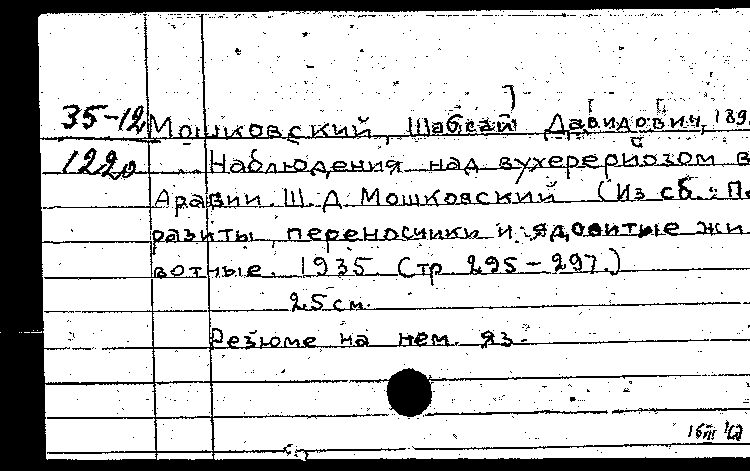 35-12 Мошковский, Шабсай Давидович, 189
1220 Наблюдения над вухерериозом в
Аравии. Ш. Д. Мошковский (Из сб.: Па
разиты, переносчики и ядовитые жи
вотные. 1935 (стр 295-297.)
25 см.
Резюме на нем. яз.